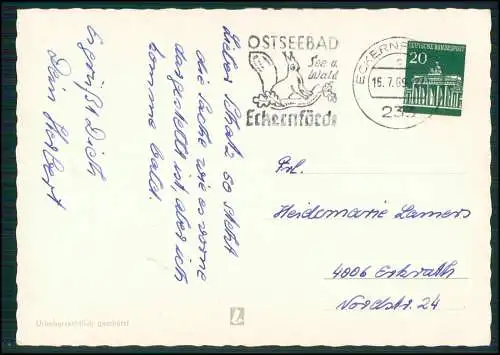 Lieber Schatz so steht
die Sache wie es vorne
dargestellt ist, aber ich
komme bald.
Es grüßt Dich
Dein Herbert
OSTSEEBAD
See u.
Wald
Eckernförde
ECKERNF
15.7.69
23
DEUTSCHE BUNDESPOST
20
Frl.
Heidemarie Lamers
4006 Erkrath
Nordstr. 24
Urheberrechtlich geschützt